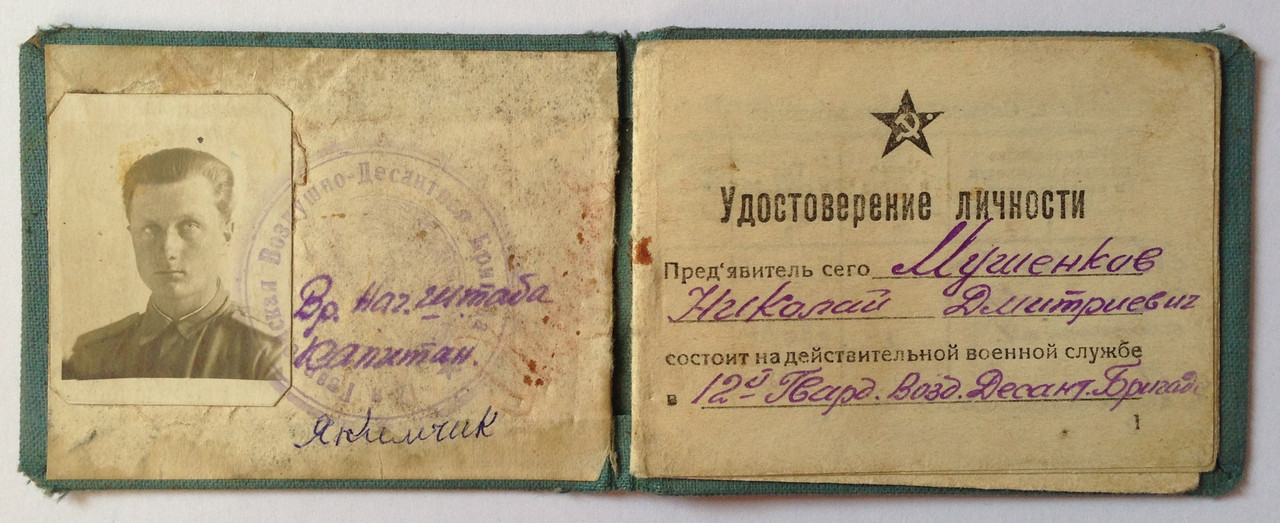 ская Воздушно-Десантная Бригада
Вр. Нач. штаба
Капитан.
Якимчик
Удостоверение личности
Пред'явитель сего Мушенков
Николай Дмитриевич
состоит на действительной военной службе
в 12й Гвард. Возд. Десант. Бригаде
1